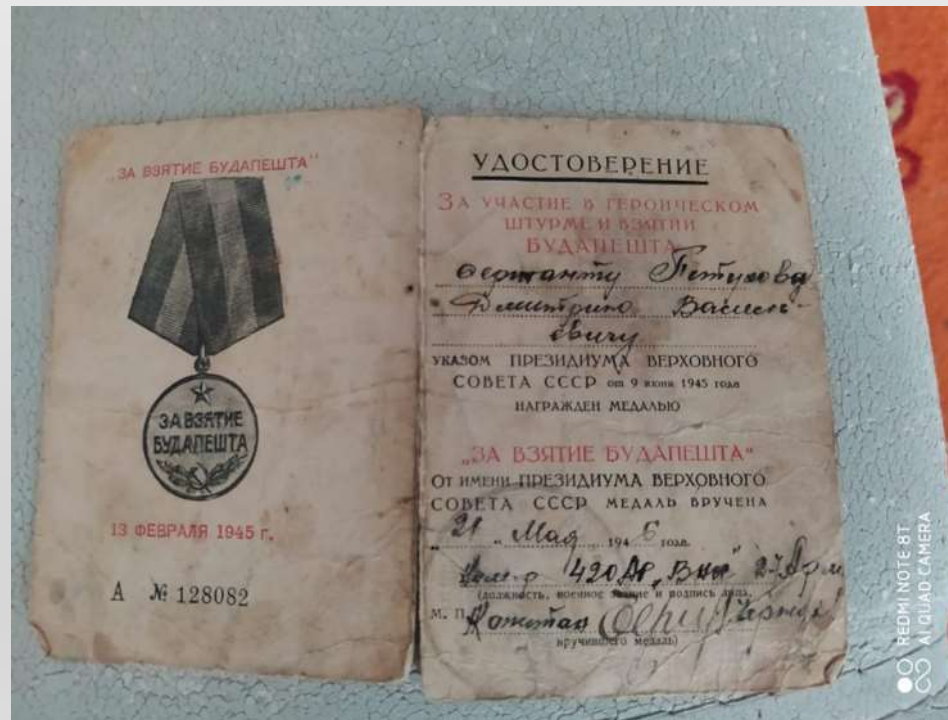 „ЗА ВЗЯТИЕ БУДАПЕШТА"
ЗА ВЗЯТИЕ
БУДАПЕШТА
13 ФЕВРАЛЯ 1945 г.
А № 128082
УДОСТОВЕРЕНИЕ
ЗА УЧАСТИЕ В ГЕРОИЧЕСКОМ
ШТУРМЕ И ВЗЯТИИ
БУДАПЕШТА
сержанту Петухову
Дмитрию Василь-
евичу
УКАЗОМ ПРЕЗИДИУМА ВЕРХОВНОГО
СОВЕТА СССР от 9 июня 1945 года
НАГРАЖДЕН МЕДАЛЬЮ
„ЗА ВЗЯТИЕ БУДАПЕШТА"
ОТ ИМЕНИ ПРЕЗИДИУМА ВЕРХОВНОГО
СОВЕТА СССР МЕДАЛЬ ВРУЧЕНА
„21" Мая 1946 года
420
(должность, военное звание и подпись лица,
М. П. Капитан
вручившего медаль)
REDMI NOTE 8T
AI QUAD CAMERA